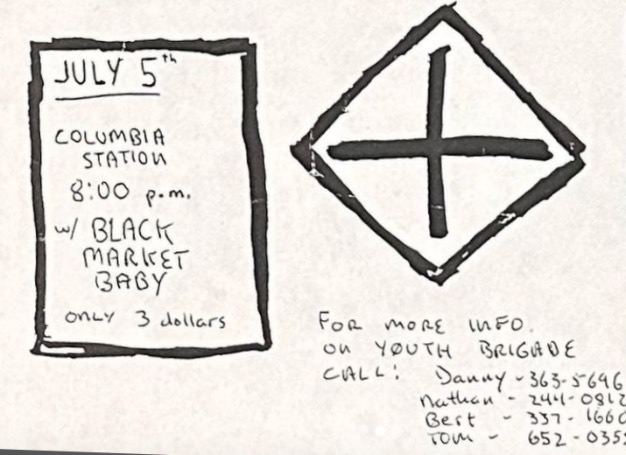 JULY 5th
COLUMBIA
STATION
8:00 p.m.
w/ BLACK
MARKET
BABY
ONLY 3 dollars
FOR MORE INFO.
ON YOUTH BRIGADE
CALL: Danny - 363-5696
Nathan - 244-0812
Bert - 337-1660
TOM - 652-0353